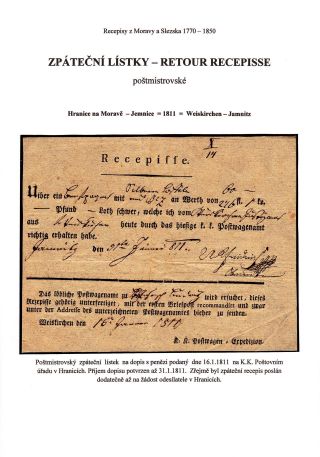 Recepisy z Moravy a Slezska 1770 – 1850
ZPÁTEČNÍ LÍSTKY – RETOUR RECEPISSE
poštmistrovské
Hranice na Moravě – Jemnice = 1811 = Weiskirchen – Jamnitz
Recepisse.
Ueber ein mit an Werth von kr.
Pfund – Loth schwer, welche ich vom
aus heute durch das hiesige k. k. Postwagenamt
richtig erhalten habe.
Jamnitz den 31ten 811.
Das löbliche Postwagenamt zu wird ersucht, dieses
Recepisse gehörig unterfertiget, mit der ersten Briefpost recommandirt und zwar
unter der Addresse des unterzeichneten Postwagenamtes hieher zu senden.
Weiskirchen den 16 1811
K. K. Postwagen-Expedition.
Poštmistrovský zpáteční lístek na dopis s penězi podaný dne 16.1.1811 na K.K. Poštovním
úřadu v Hranicích. Příjem dopisu potvrzen až 31.1.1811. Zřejmě byl zpáteční recepis poslán
dodatečně až na žádost odesílatele v Hranicích.